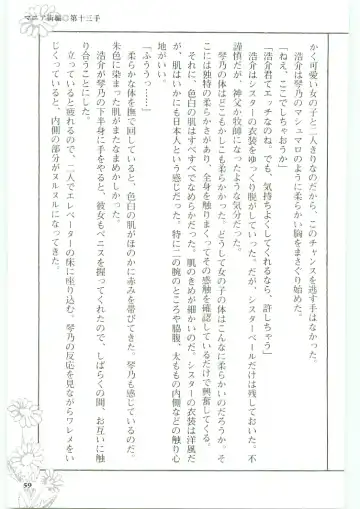 マニア新編◎第十三手
かく可愛い女の子と二人きりなのだから、このチャンスを逃す手はなかった。
浩介は琴乃のマシュマロのように柔らかい胸をまさぐり始めた。
「ねえ、ここでしちゃおうか」
「浩介君てエッチなのね。でも、気持ちよくしてくれるなら、許しちゃう」
浩介はシスターの衣装をゆっくり脱がしていった。だが、シスターベールだけは残しておいた。不
謹慎だが、神父か牧師になったような気分だった。
琴乃の体はどこもかしこも柔らかかった。どうして女の子の体はこんなに柔らかいのだろうか。そ
こには独特の柔らかさがあり、全身を触りまくってその感触を確認しているだけで興奮してくる。
それに、色白の肌はすべすべでなめらかだった。肌のきめが細かいのだ。シスターの衣装は洋風だ
が、肌はいかにも日本人という感じだった。特に二の腕のところや脇腹、太ももの内側などの触り心
地がいい。
「ふううっ……」
柔らかな体を撫で回していると、色白の肌がほのかに赤みを帯びてきた。琴乃も感じているのだ。
朱色に染まった肌がまたなまめかしかった。
浩介が琴乃の下半身に手をやると、彼女もペニスを握ってくれたので、しばらくの間、お互いに触
り合うことにした。
立っていると疲れるので、二人でエレベーターの床に座り込む。琴乃の反応を見ながらワレメをい
じくっていると、内側の部分がヌルヌルになってきた。
59